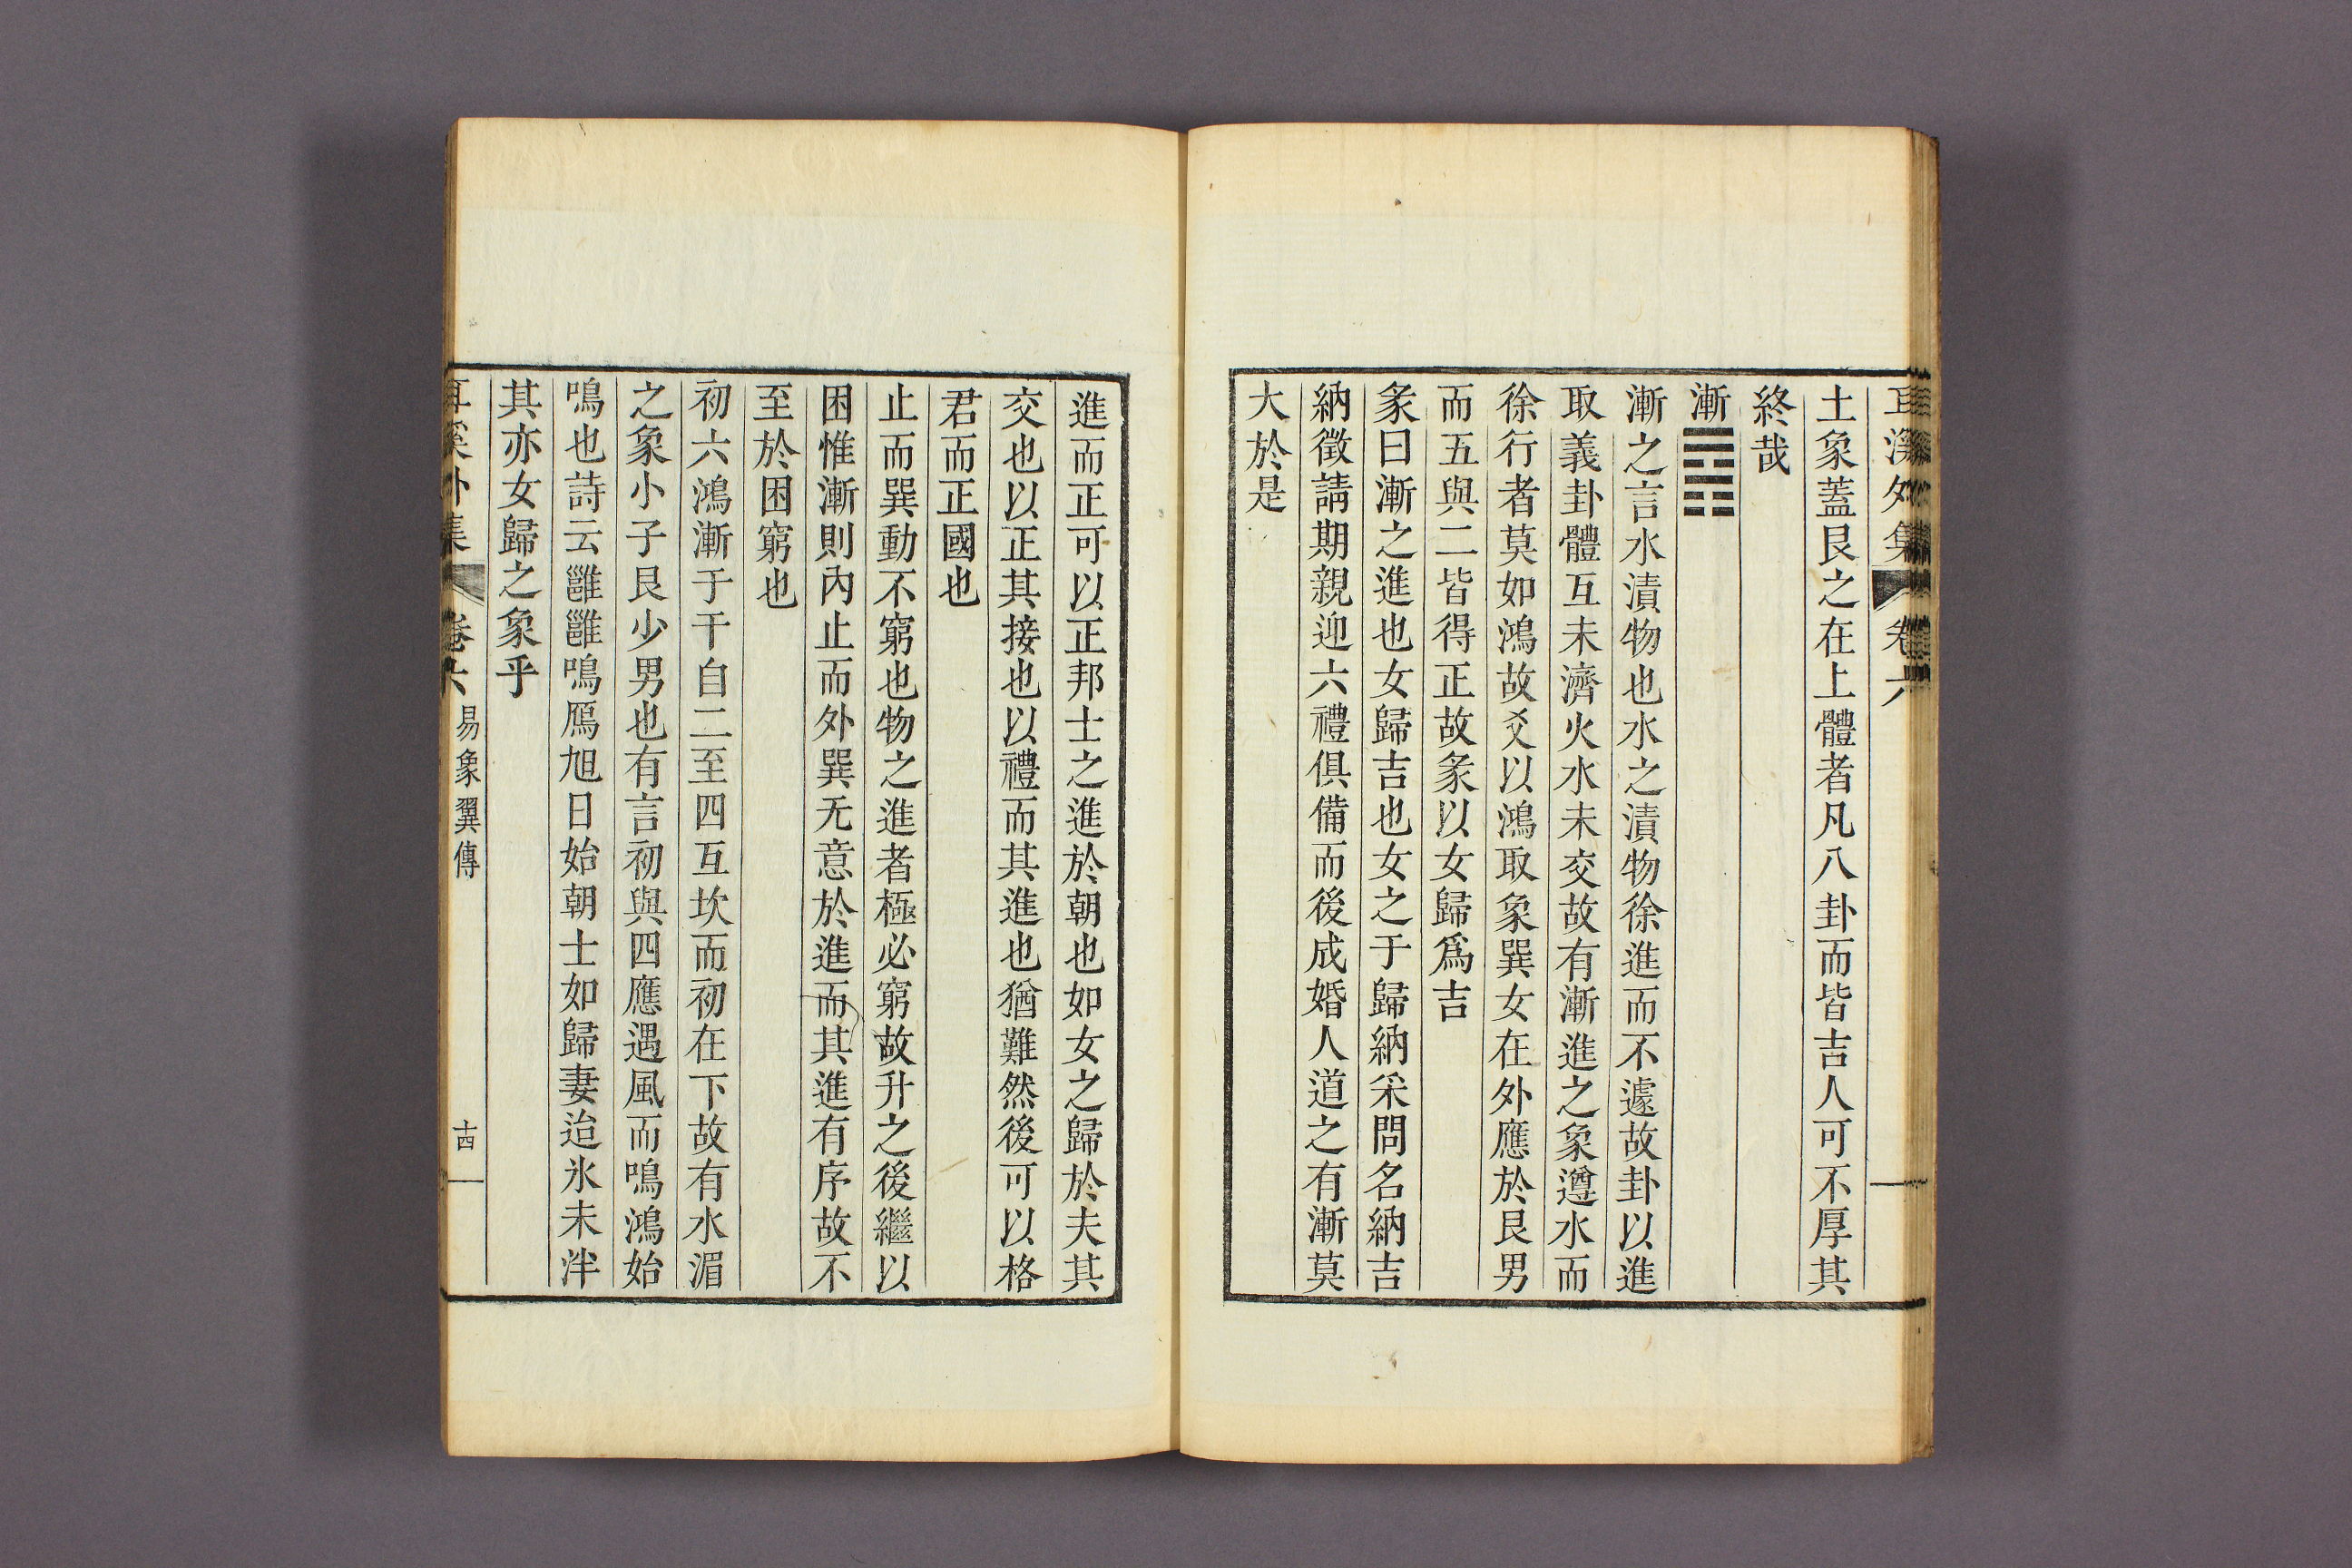 耳溪外集 卷六
土象蓋艮之在上體者凡八卦而皆吉人可不厚其
終哉
漸䷴
漸之言水漬物也水之漬物徐進而不遽故卦以進
取義卦體互未濟火水未交故有漸進之象遵水而
徐行者莫如鴻故爻以鴻取象巽女在外應於艮男
而五與二皆得正故彖以女歸爲吉
彖曰漸之進也女歸吉也女之于歸納采問名納吉
納徵請期親迎六禮俱備而後成婚人道之有漸莫
大於是
進而正可以正邦士之進於朝也如女之歸於夫其
交也以正其接也以禮而其進也猶難然後可以格
君而正國也
止而巽動不窮也物之進者極必窮故升之後繼以
困惟漸則內止而外巽无意於進而其進有序故不
至於困窮也
初六鴻漸于干自二至四互坎而初在下故有水湄
之象小子艮少男也有言初與四應遇風而鳴鴻始
鳴也詩云雝雝鳴鴈旭日始朝士如歸妻迨氷未泮
其亦女歸之象乎
耳溪外集 卷六 易象翼傳 十四